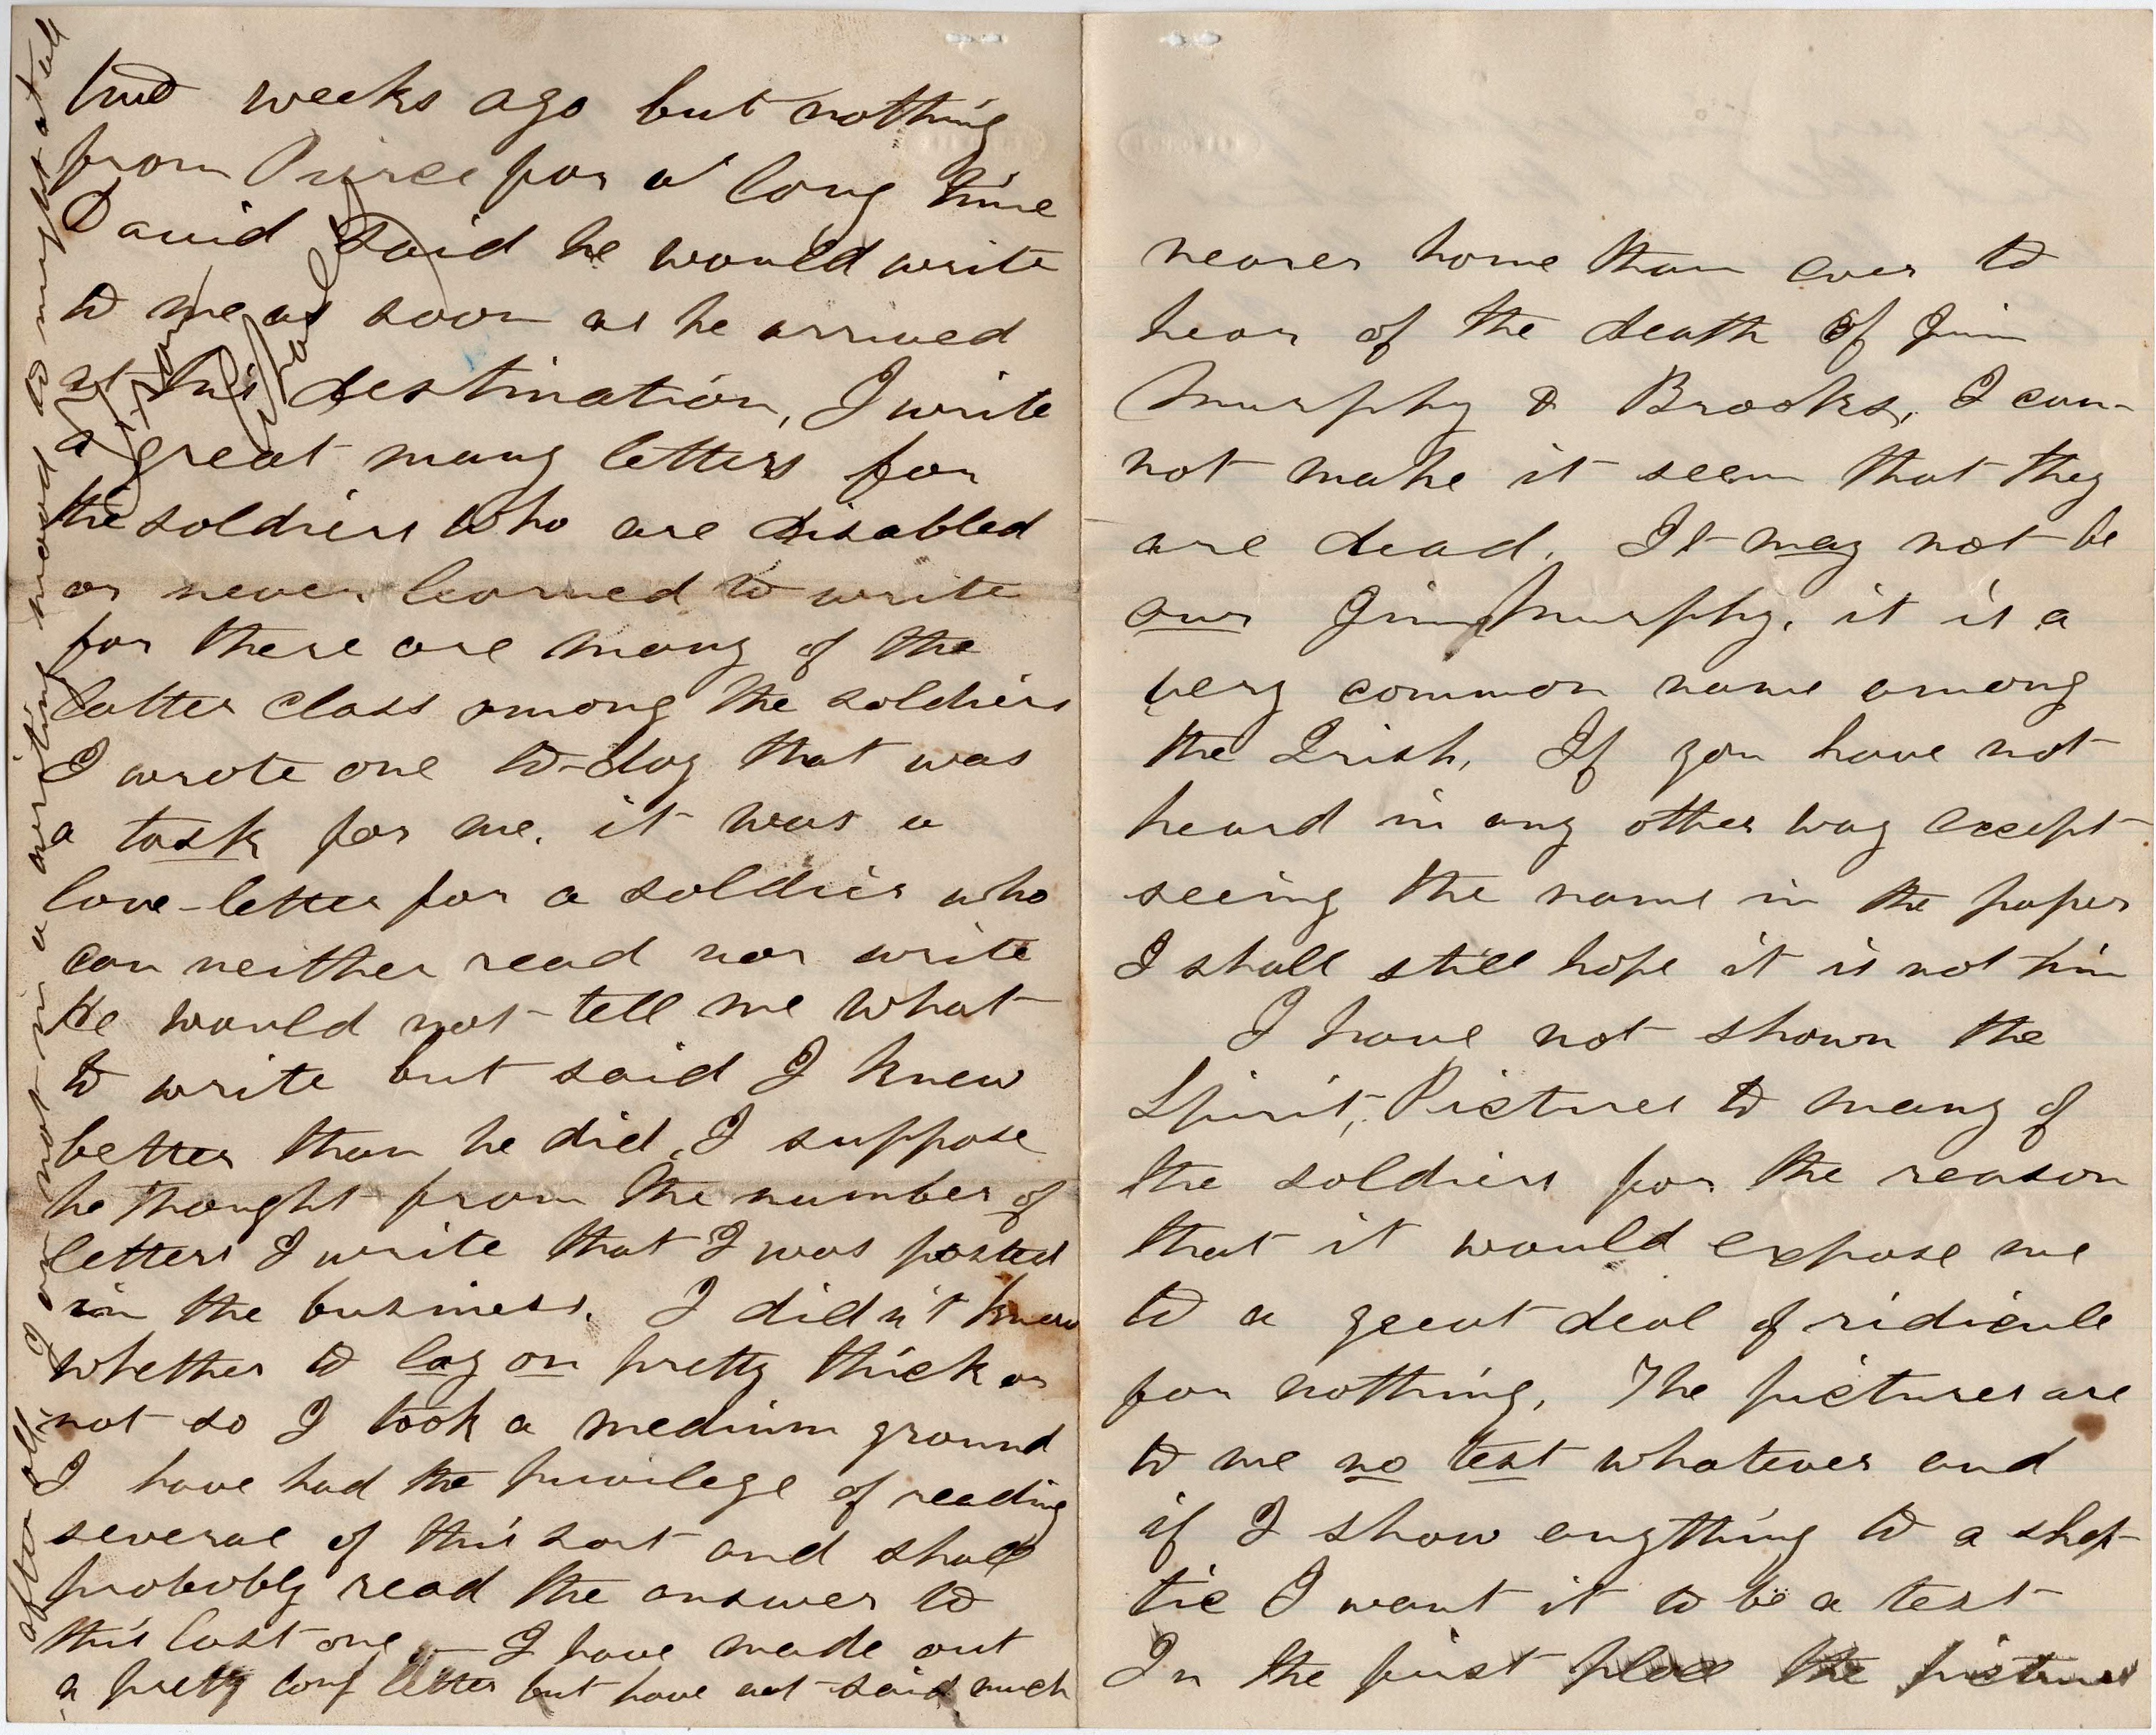 two weeks ago but nothing
from Pierce for a long time
David said he would write
to me as soon as he arrived
at his destination, I write
a great many letters for
the soldiers who are disabled
or never learned to write
for there are many of the
latter class among the soldiers
I wrote one to-day that was
a task for me. it was a
love-letter for a soldier who
can neither read nor write
He would not tell me what
to write but said I knew
better than he did, I suppose
he thought from the number of
letters I write that I was posted
in the business. I didn't know
whether to lay on pretty thick or
not so I took a medium ground
I have had the privilege of reading
several of this sort and shall
probably read the answer to
this last one – I have made out
a pretty long letter but have not said much
after all. I am not in a writing mood to night at all
nearer home than ever to
hear of the death of Jim
Murphy & Brooks, I can-
not make it seem that they
are dead. It may not be
our Jim Murphy, it is a
very common name among
the Irish, If you have not
heard in any other way except
seeing the name in the paper
I shall still hope it is not him
I have not shown the
Spirit, Pictures to many of
the soldiers for the reason
that it would expose me
to a great deal of ridicule
for nothing, The pictures are
to me no test whatever and
if I show anything to a skep-
tic I want it to be a test
In the first place the pictures